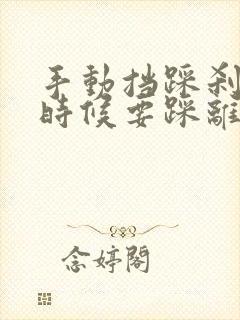 手動挡踩刹
時候要踩離
念婷閣